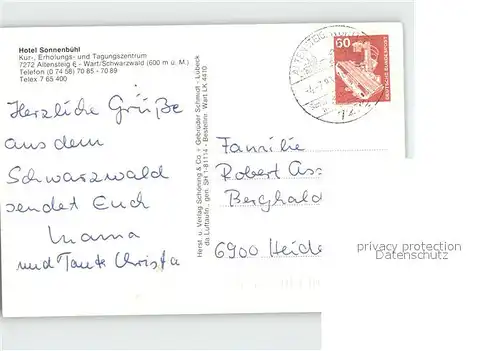 Hotel Sonnenbühl
Kur-, Erholungs- und Tagungszentrum
7272 Altensteig 6 - Wart/Schwarzwald (600 m ü. M.)
Telefon (0 74 58) 70 85 - 70 89
Telex 7 65 400
Herzliche Grüße
aus dem
Schwarzwald
sendet Euch
Mama
und Tante Christa
Herst. u. Verlag Schöning & Co + Gebrüder Schmidt - Lübeck
da Luftaufn. gen. SH 1-81114 - Bestellnr. Wart LK 4410
ALTENSTEIG
60
DEUTSCHE BUNDESPOST
7272
Familie
Robert
Berghald
6900 Heide
privacy protection
Datenschutz